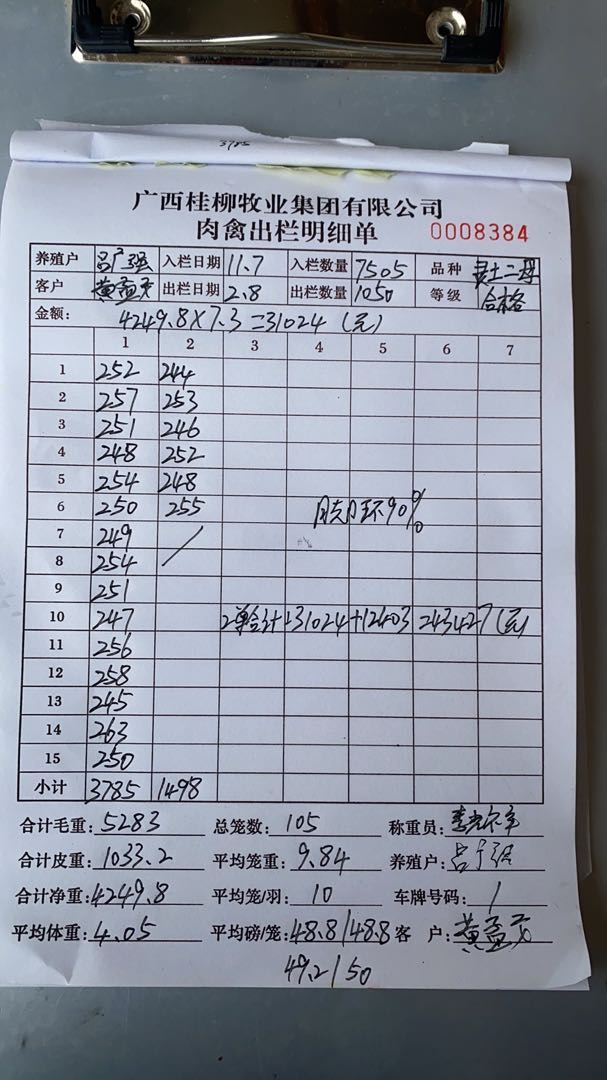 3785
广西桂柳牧业集团有限公司
肉禽出栏明细单 0008384
养殖户 吕广强 入栏日期 11.7 入栏数量 7505 品种 灵土二号
客户 黄孟天 出栏日期 2.8 出栏数量 1050 等级 合格
金额: 4249.8×7.3=31024(元)
1 2 3 4 5 6 7
1 252 244
2 257 253
3 251 246
4 248 252
5 254 248
6 250 255 脚环90%
7 249
8 254
9 251
10 247 2单合计=31024+12403=43427(元)
11 256
12 258
13 245
14 263
15 250
小计 3785 1498
合计毛重: 5283 总笼数: 105 称重员:
合计皮重: 1033.2 平均笼重: 9.84 养殖户: 吕广强
合计净重: 4249.8 平均笼/羽: 10 车牌号码: /
平均体重: 4.05 平均磅/笼: 48.8/48.8 客户: 黄孟天
49.2/50